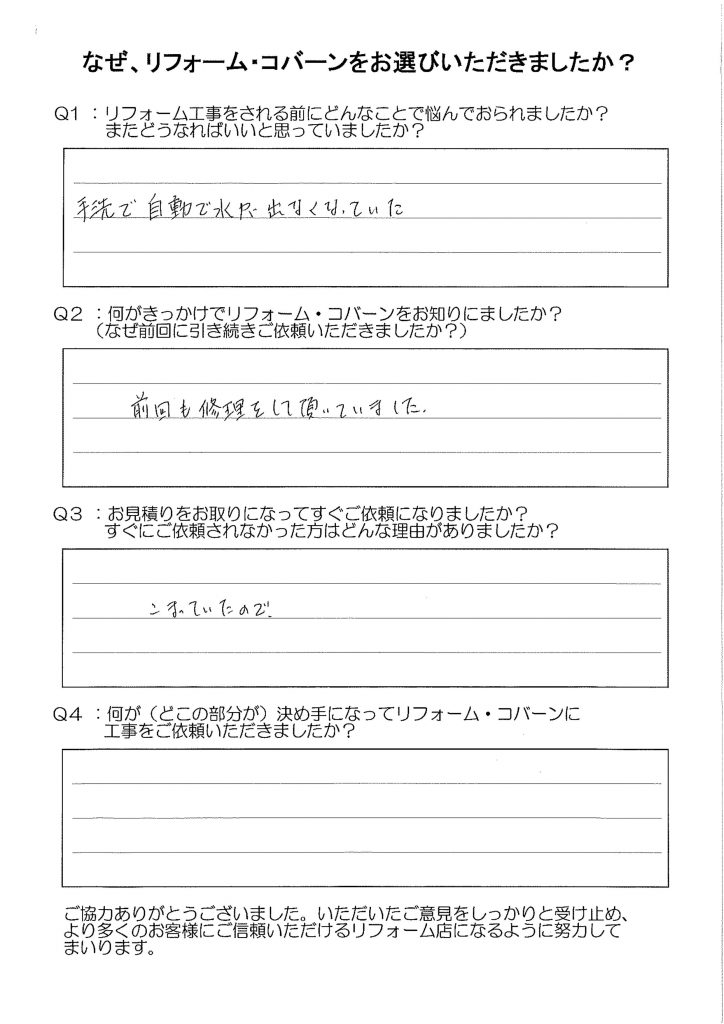 なぜ、リフォーム・コバーンをお選びいただきましたか？
Q1 ：リフォーム工事をされる前にどんなことで悩んでおられましたか？
またどうなればいいと思っていましたか？
手洗で自動で水が出なくなっていた
Q2 ：何がきっかけでリフォーム・コバーンをお知りにましたか？
（なぜ前回に引き続きご依頼いただきましたか？）
前回も修理をして頂いていました.
Q3 ：お見積りをお取りになってすぐご依頼になりましたか？
すぐにご依頼されなかった方はどんな理由がありましたか？
こまっていたので.
Q4 ：何が（どこの部分が）決め手になってリフォーム・コバーンに
工事をご依頼いただきましたか？
ご協力ありがとうございました。いただいたご意見をしっかりと受け止め、
より多くのお客様にご信頼いただけるリフォーム店になるように努力して
まいります。